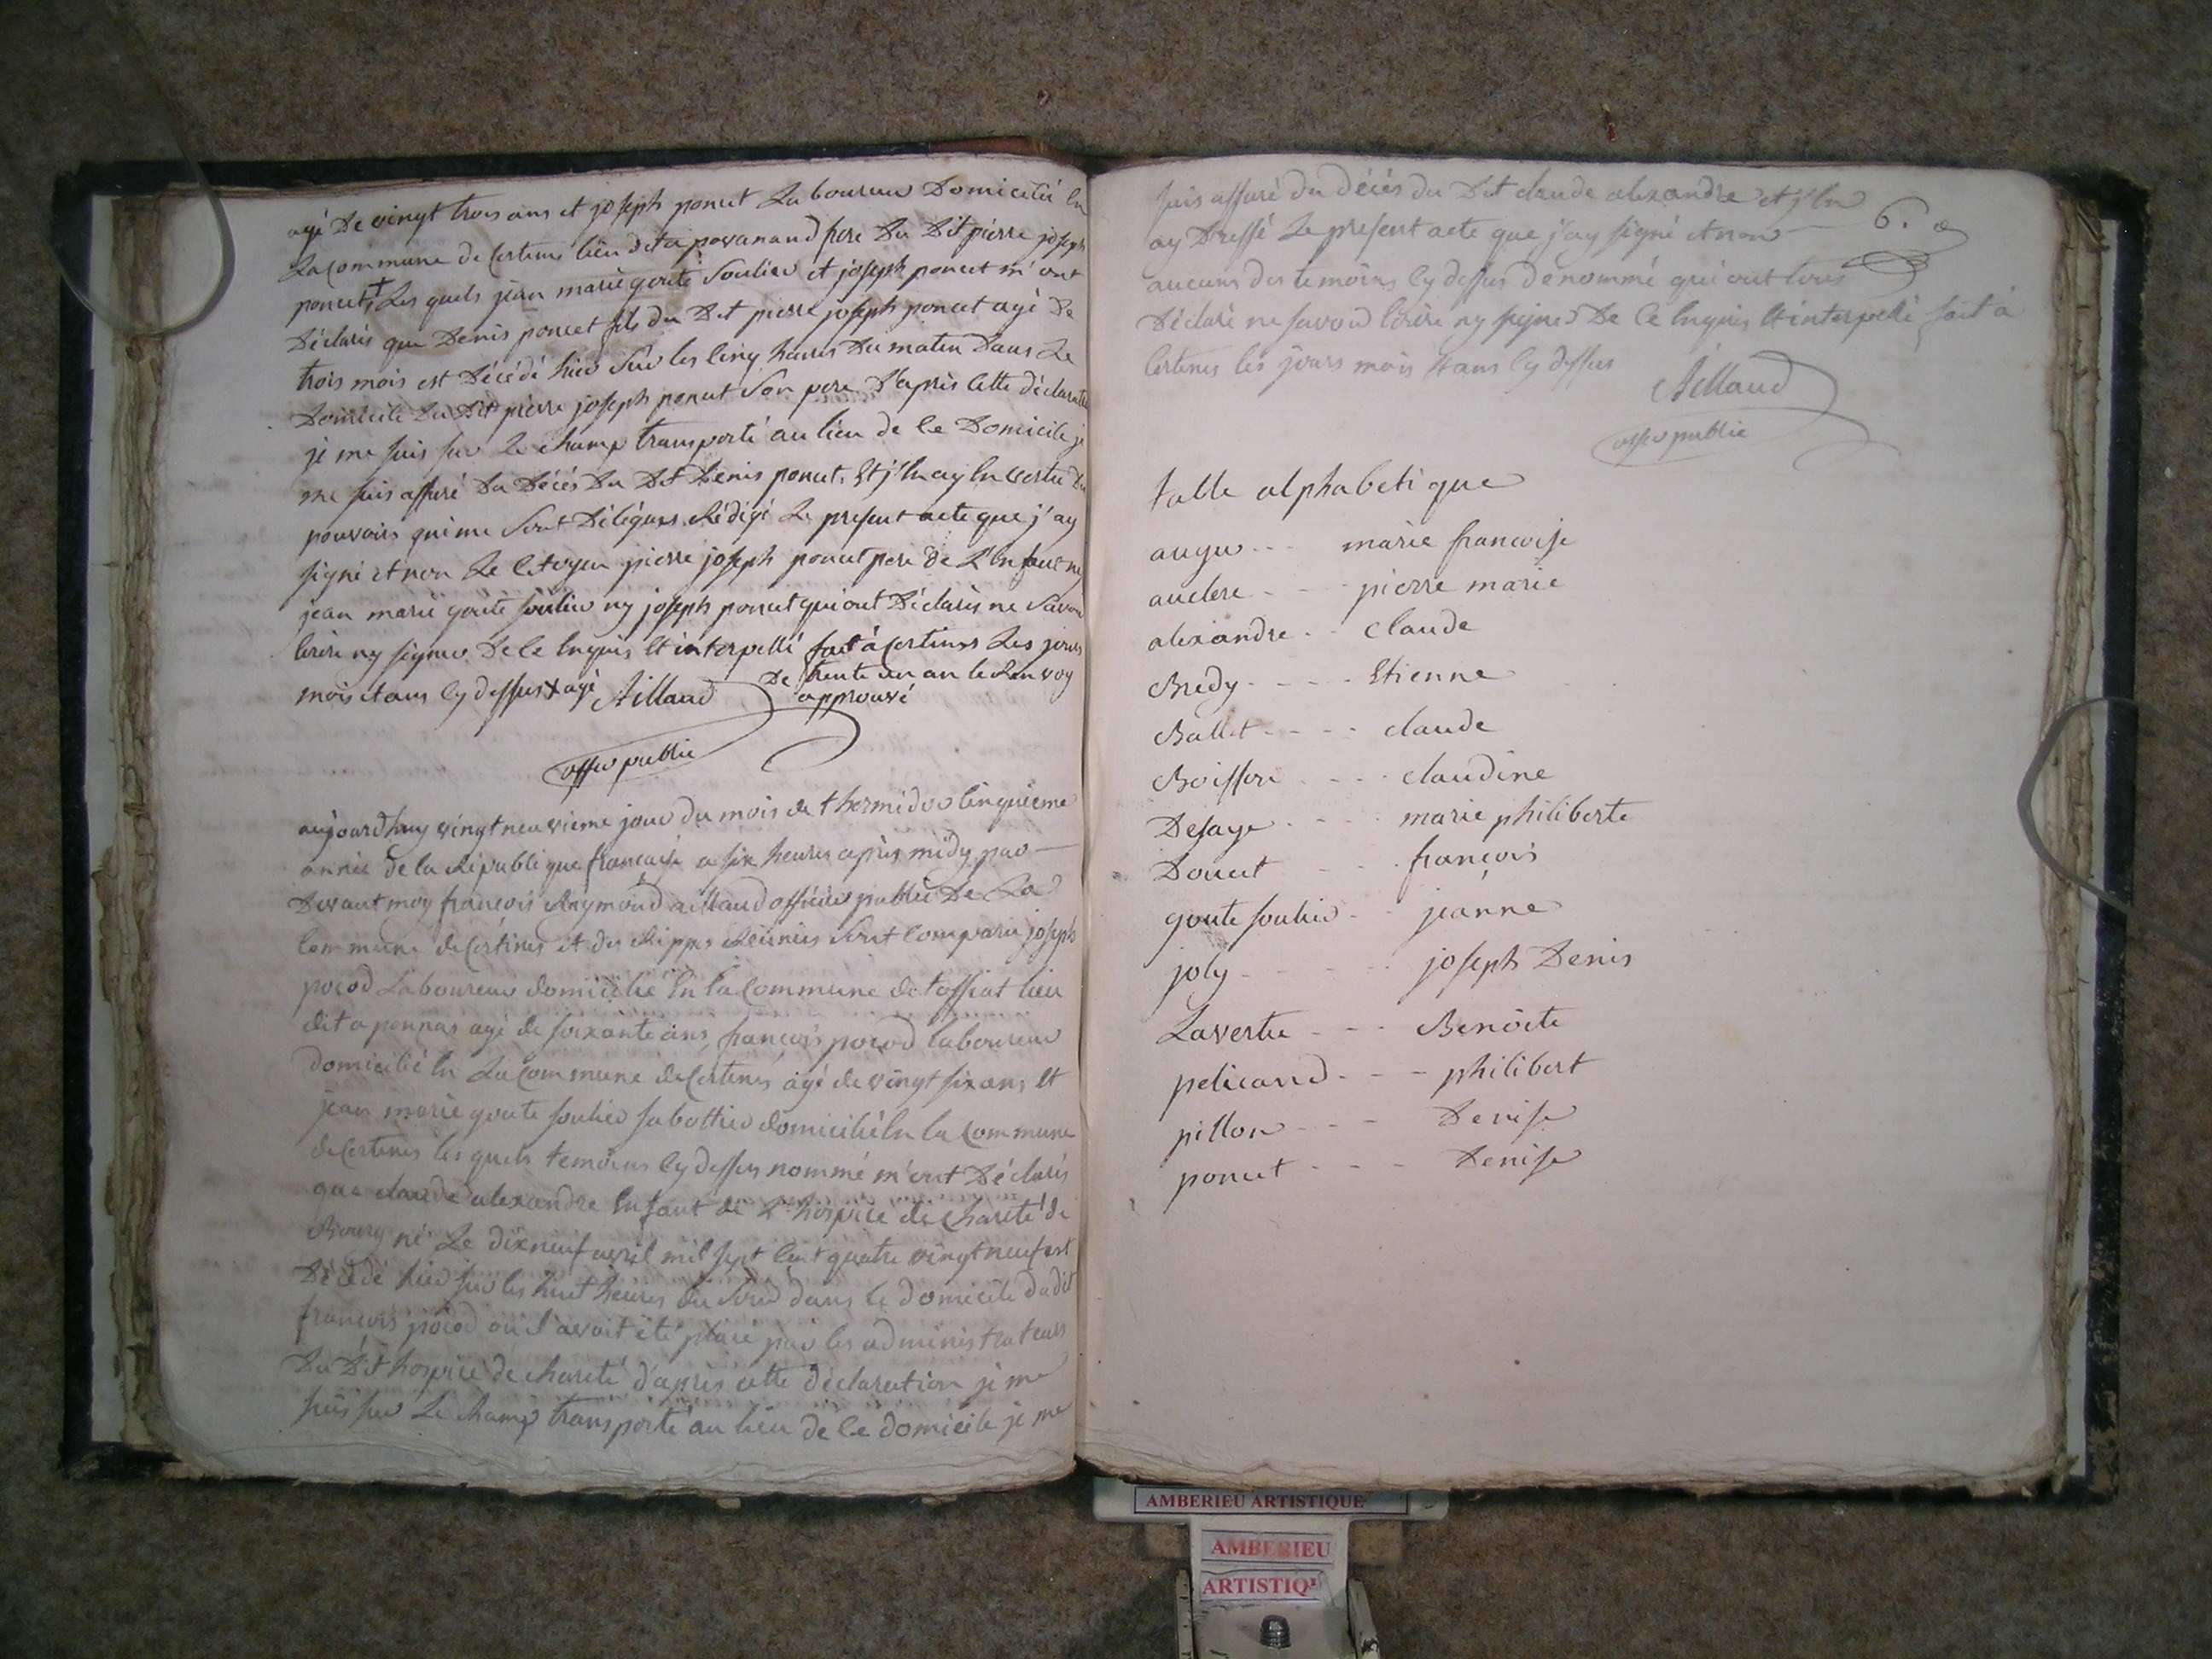 agé De vingt trois ans et joseph poncet Laboureur Domicilié En
La Commune de Certines lieu dit a povanand frere Du Dit pierre joseph
poncet + Les quels jean marie goute Soulier et joseph poncet m'ont
Déclarés que Denis poncet fils du Dit pierre joseph poncet agé De
trois mois est Décédé hier Sur les Cinq heures Du matin Dans Le
Domicile Du Dit pierre joseph poncet Son pere D'après Cette déclaration
je me suis sur Le Champ transporté au lieu de Ce Domicile je
me suis assuré Du Décès Du Dit Denis poncet, Et j'En ay En vertu Des
pouvoirs qui me Sont Délégués Rédigé Le present acte que j'ay
signé et non Le Citoyen pierre joseph poncet pere De L'Enfant ny
jean marie goute soulier ny joseph poncet qui ont Déclarés ne Savoir
Ecrire ny signer De Ce Enquis Et interpellé fait à Certines Les jours
mois et ans Cy dessus + agé De trente un an le Renvoy
approuvé
Aillaud
offier public
aujourdhuy vingt neuvieme jour du mois de thermidor Cinquieme
année de la Republique française a six heures après midy par
Devant moy françois Reymond aillaud officier public De La
Commune de Certines et des Rippes Réunies Sont Comparu joseph
pocod Laboureur domicilié En la Commune de tossiat lieu
dit a ponnas agé de soixante ans, françois pocod laboureur
domicilié En La Commune de Certines agé de vingt six ans Et
jean marie goute soulier sabottier domicilié En la Commune
de Certines les quels temoins Cy dessus nommé m'ont Déclarés
que claude alexandre Enfant de L'hospice de Charité de
Bourg né Le dix neuf avril mil sept Cent quatre vingt neuf est
Décédé hier sur les huit heures du Soir dans le domicile dudit
françois pocod ou L'avoit été placé par les administrateurs
Du Dit hospice de charité d'après cette déclaration je me
suis sur Le Champ transporté au lieu de Ce domicile je me
suis assuré du décès du Dit claude alexandre et j'En
ay Dressé Le present acte que j'ay signé et non
6.
aucuns des temoins Cy dessus denommé qui ont tous
Déclaré ne savoir Ecrire ny signer De Ce Enquis Et interpellé fait à
Certines les jours mois et ans Cy dessus
Aillaud
offier public
table alphabetique
auger - - - marie françoise
auclere - - - pierre marie
alexandre - - Claude
Bredy - - - - Etienne
Ballet - - - - claude
Boisson - - - - claudine
Desaye - - - - marie philiberte
Doucet - - - françois
goute soulier - - jeanne
joly - - - - - joseph Denis
Lavertu - - - Benoite
pelicand - - - philibert
pillon - - - Denise
poncet - - - Denise
AMBERIEU ARTISTIQUE
AMBERIEU
ARTISTIQ